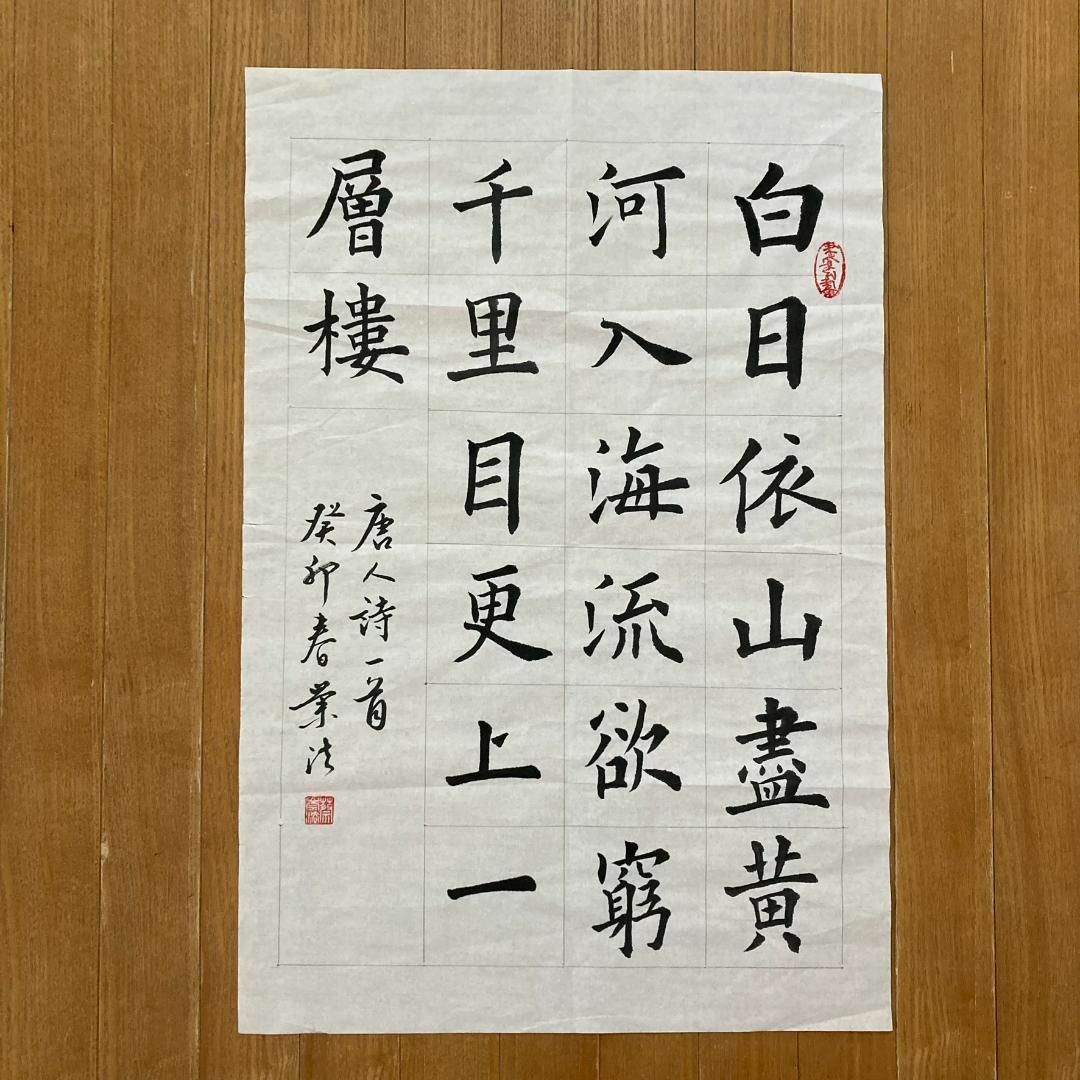 白日依山盡黃
河入海流欲窮
千里目更上一
層樓
唐人詩一首
癸卯春業法